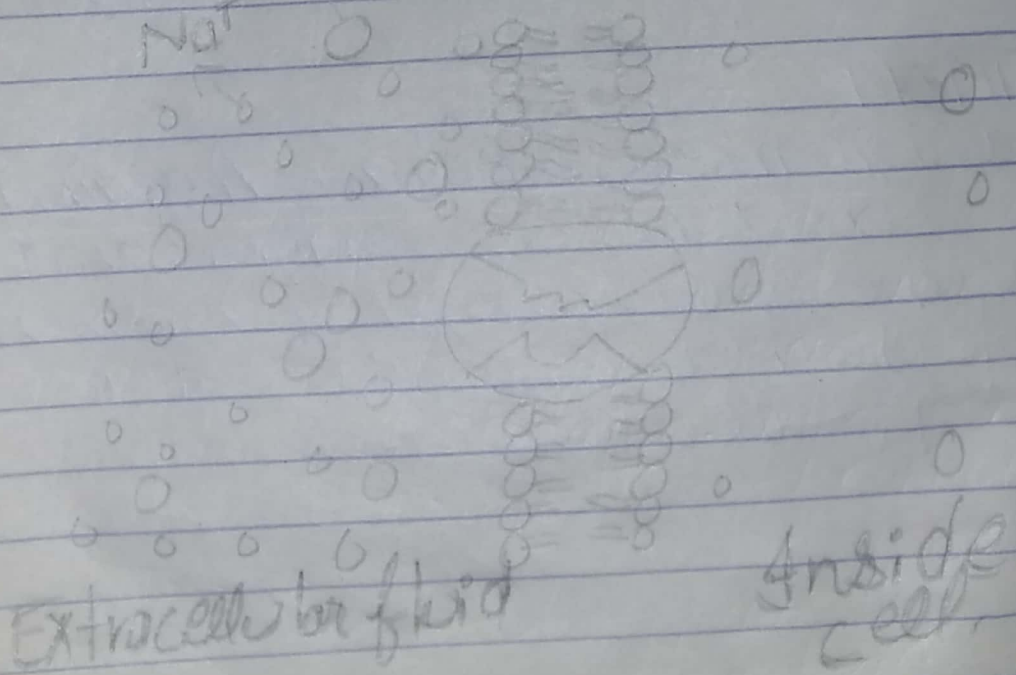 Na⁺
Extracellular fluid
Inside
cell.